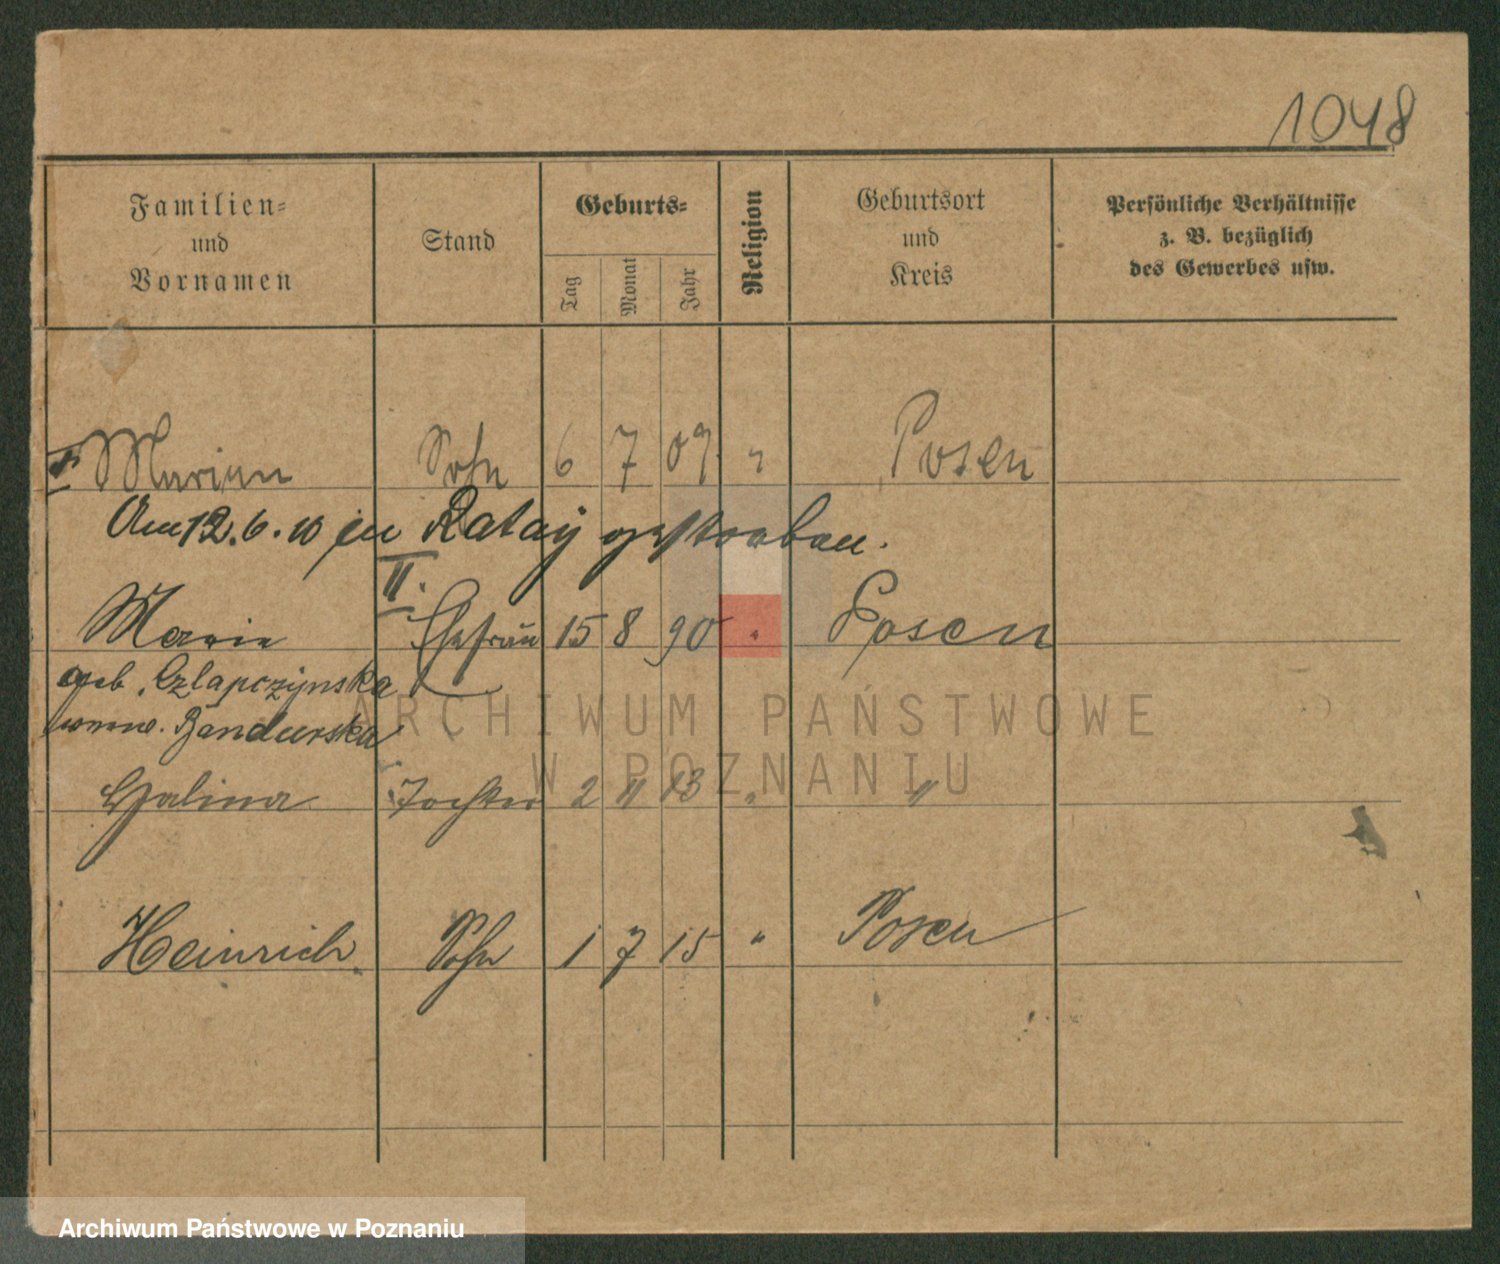 1048
Familien=
und
Vornamen
Stand
Geburts=
Tag
Monat
Jahr
Religion
Geburtsort
und
Kreis
Persönliche Verhältnisse
z. B. bezüglich
des Gewerbes usw.
Marian Sohn 6 7 09. " Posen
Am 12.6.10 in Rataÿ gestorben.
II.
Marie Ehefrau 15 8 90 " Posen
geb. Czlapczynska
verw. Bandurska
Halina Tochter 2 11 13 " "
Heinrich Sohn 1 7 15 " Posen
ARCHIWUM PAŃSTWOWE
W POZNANIU
Archiwum Państwowe w Poznaniu